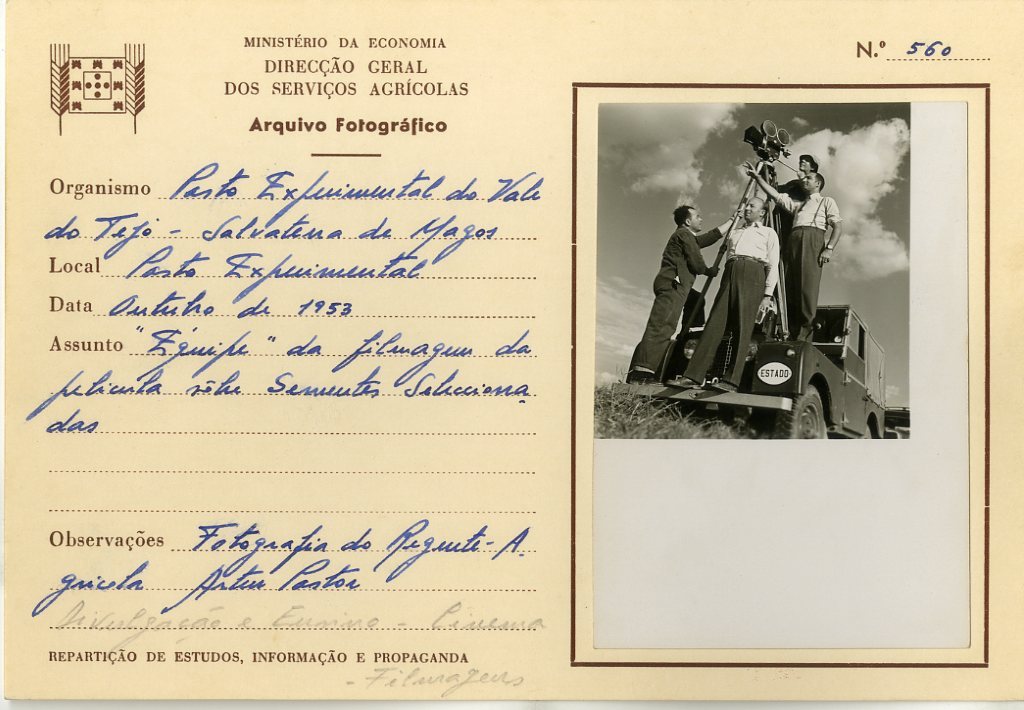 MINISTÉRIO DA ECONOMIA
DIRECÇÃO GERAL
DOS SERVIÇOS AGRÍCOLAS
Arquivo Fotográfico
N.º 560
Organismo Posto Experimental do Vale
do Tejo - Salvaterra de Magos
Local Posto Experimental
Data Outubro de 1953
Assunto "Équipe" da filmagem da
película sôbre Sementes Selecciona
das
ESTADO
Observações Fotografia do Regente-A
grícola Artur Pastor
Divulgação e Ensino - Cinema
REPARTIÇÃO DE ESTUDOS, INFORMAÇÃO E PROPAGANDA
- Filmagens